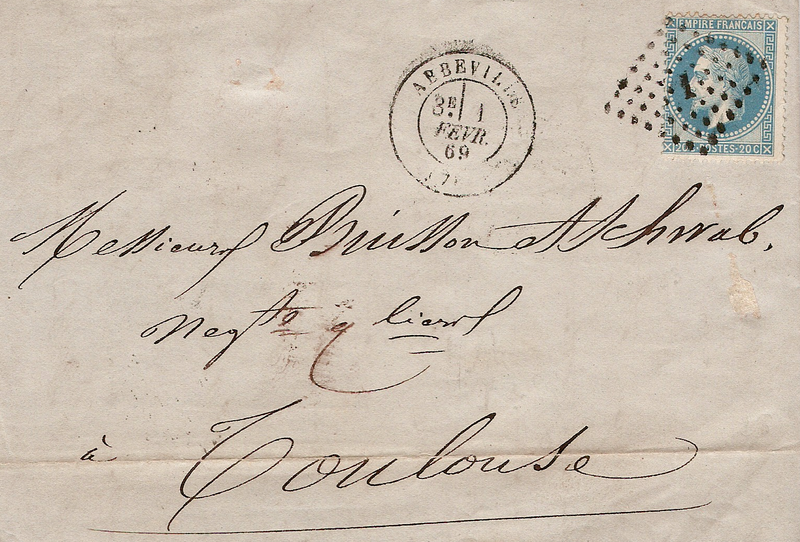 EMPIRE FRANÇAIS
20 C POSTES-20 C
1
ABBEVILLE
3E 1
FEVR.
69
Messieurs Buisson et Schwab,
Negts
à Toulouse